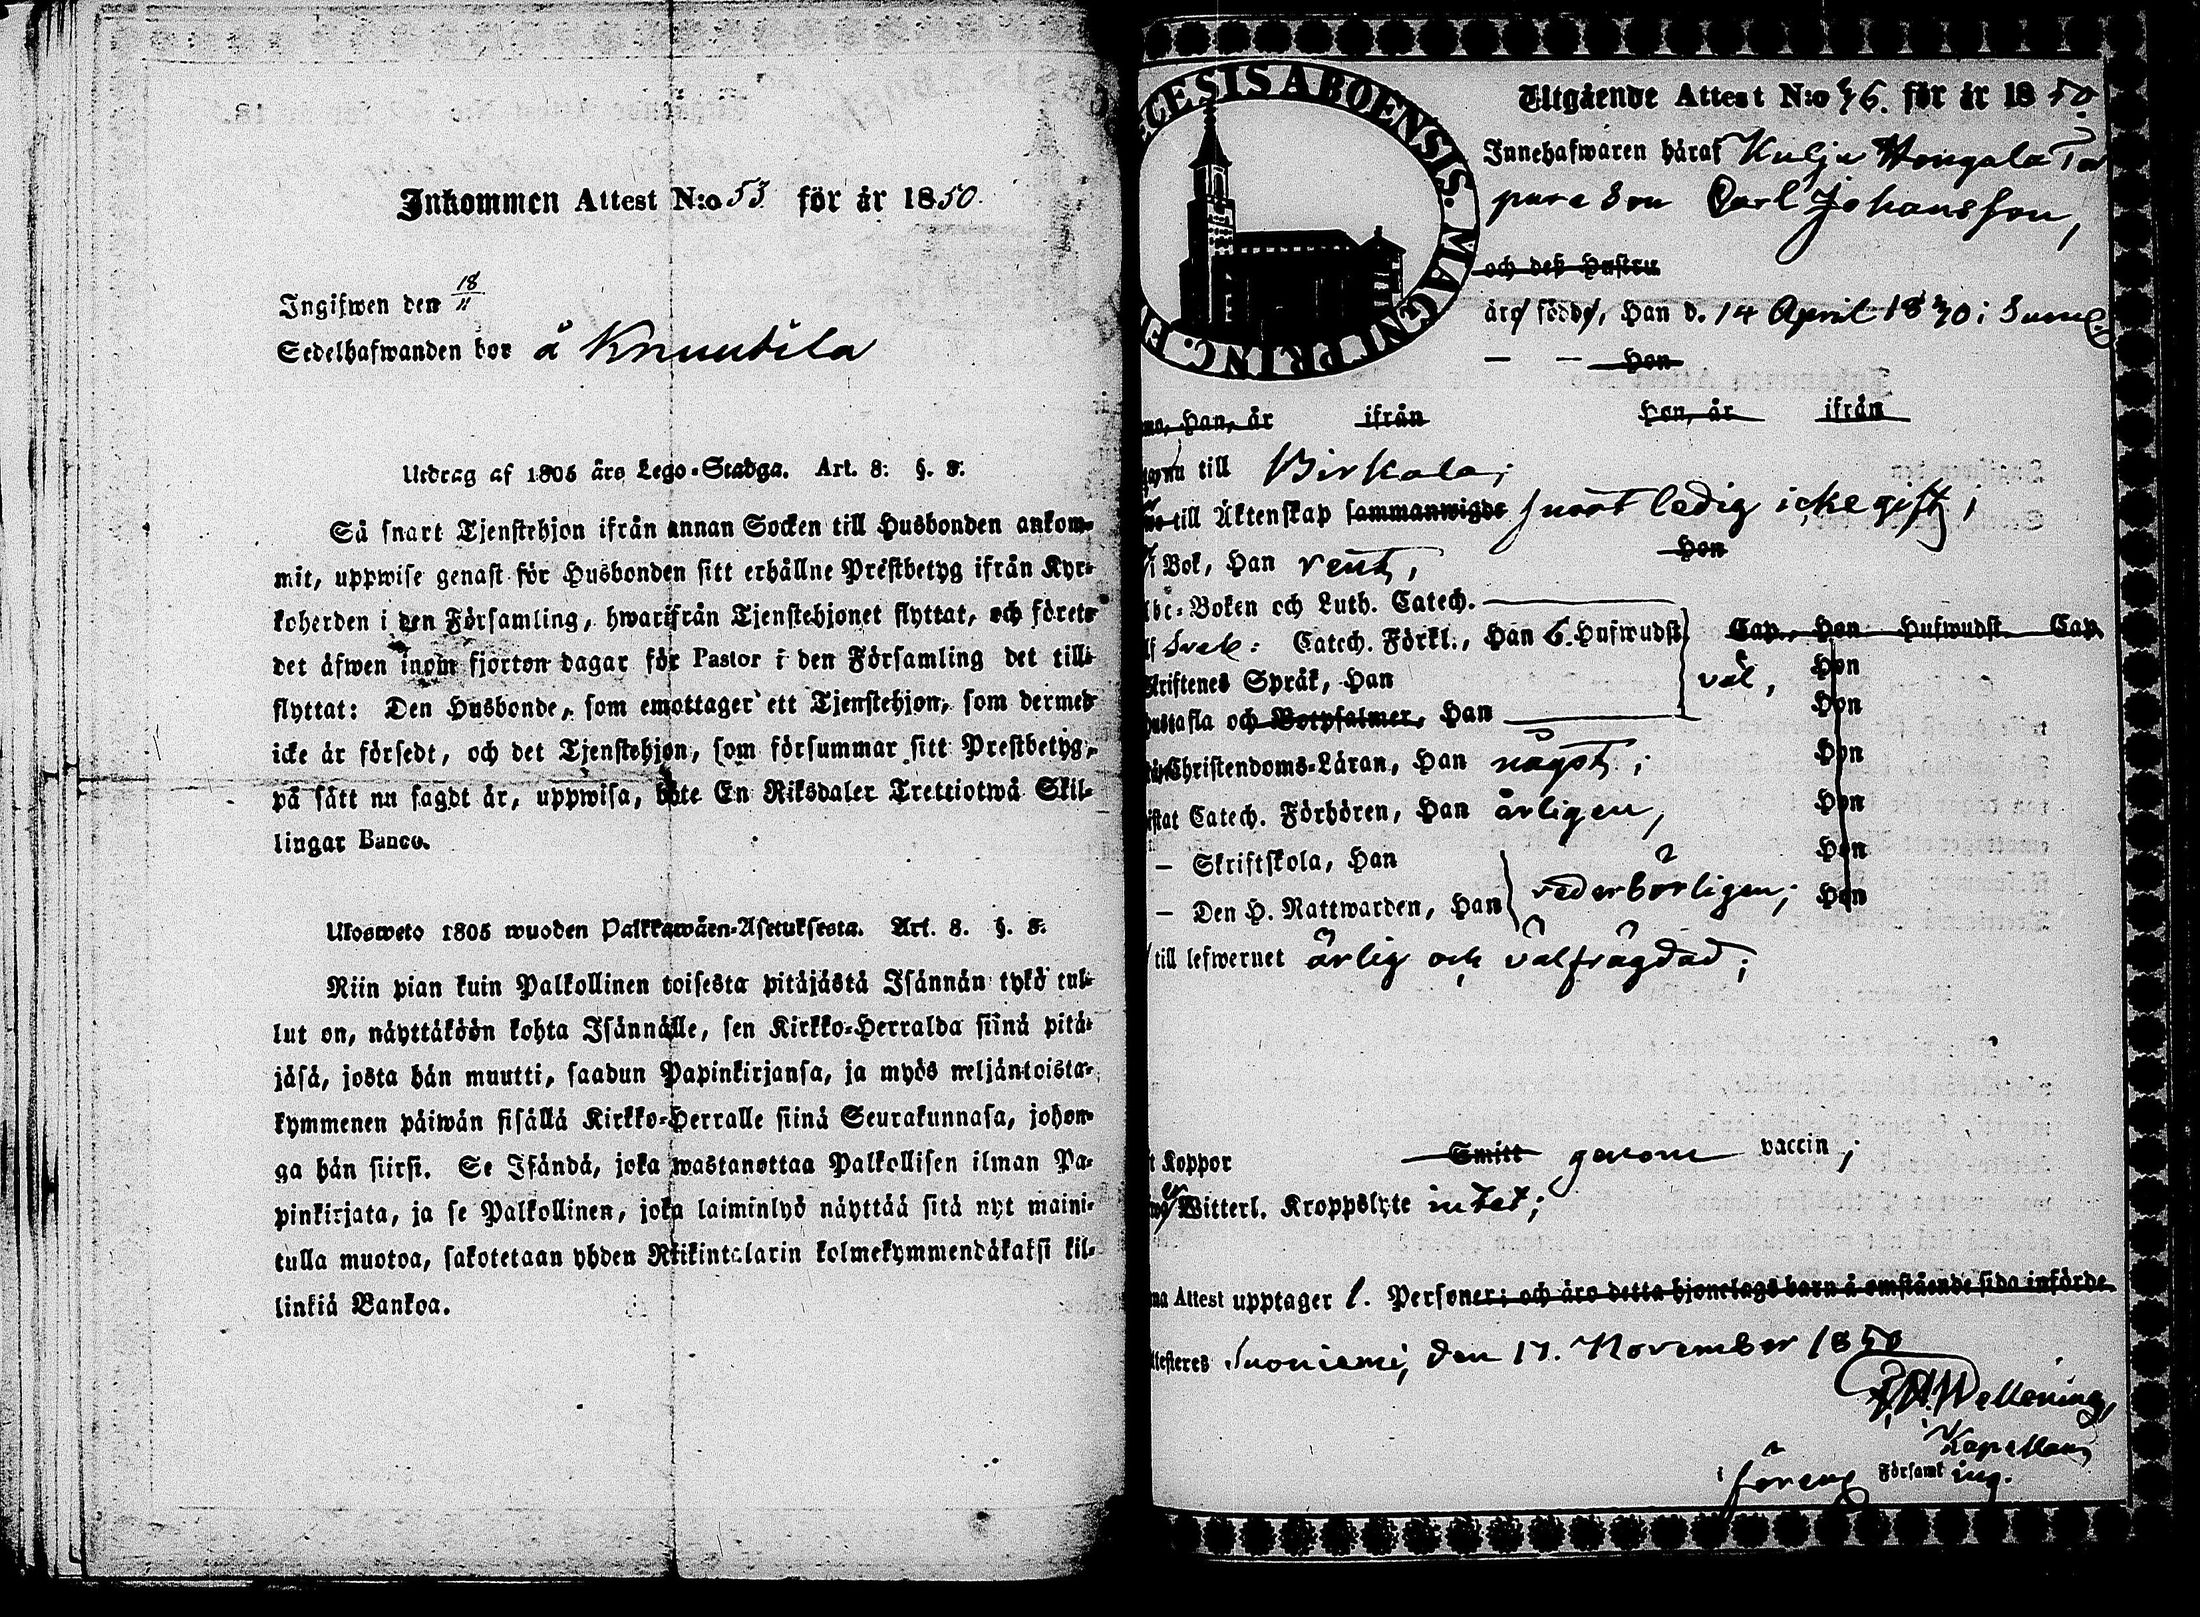 Inkommen Attest N:o 53 för år 1850.
Ingifwen den 18/11
Sedelhafwanden bor å Knuutila
Utdrag af 1805 års Lego-Stadga. Art. 8: §. 8:
Så snart Tjenstehjon ifrån annan Socken till Husbonden ankom-
mit, uppwise genast för Husbonden sitt erhållne Prestbetyg ifrån Kyr-
koherden i den Församling, hwarifrån Tjenstehjonet flyttat, och förete
det äfwen inom fjorton dagar för Pastor i den Församling det till-
flyttat: Den Husbonde, som emottager ett Tjenstehjon, som dermed
icke är försedt, och det Tjenstehjon, som försummar sitt Prestbetyg,
på sätt nu sagdt är, uppwisa, böte En Riksdaler Trettiotwå Skil-
lingar Banco.
Ulosweto 1805 wuoden Palkkawäen-Asetuksesta. Art. 8. §. 8:
Niin pian kuin Palkollinen toisesta pitäjästä Isännän tykö tul-
lut on, näyttäköön kohta Isännälle, sen Kirkko-Herralda siinä pitä-
jäsä, josta hän muutti, saadun Papinkirjansa, ja myös neljäntoista-
kymmenen päiwän sisällä Kirkko-Herralle siinä Seurakunnasa, johon-
ga hän siirsi. Se Isändä, joka wastanottaa Palkollisen ilman Pa-
pinkirjata, ja se Palkollinen, joka laiminlyö näyttää sitä nyt maini-
tulla muotoa, sakotetaan yhden Riikintalarin kolmekymmendäkaksi kil-
linkiä Bankoa.
CESIS ABOENSIS. MAGNI PRINC.
Utgående Attest N:o 76. för år 1850.
Innehafwaren häraf Kulju Hongola Tor
pare Son Carl Johansson,
och dess Hustru
äro födde, Han d. 14 April 1830 i Suoni
Hon
Han, är ifrån Hon, är ifrån
till Birkala;
till Äktenskap sammanwigde samt ledig icke gift;
Hon
i Bok, Han rent,
Boken och Luth. Catech.
Sveb: Catech. Förkl., Han 6. Hufwudst. Cap. Hon Hufwudst. Cap.
Skriftenes Språk, Han väl, Hon
Hustafla och Botpsalmer, Han Hon
Christendoms-Läran, Han något; Hon
Catech. Förhören, Han årligen, Hon
— Skriftskola, Han Hon
— Den H. Nattwarden, Han vederbörligen; Hon
till lefwernet ärlig och välfrägdad;
Koppor Smitt genom vaccin;
Witterl. Kroppslyte intet;
Attest upptager 1. Personer; och äro detta hjonelags barn å omstående sida införde.
Suoniemi, den 17. November 1850
Kapellan
i Församling.